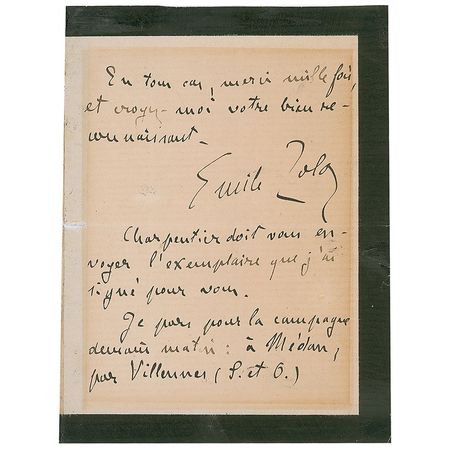 En tous cas, merci mille fois,
et croyez-moi votre bien re-
connaissant.
Emile Zola
Charpentier doit vous en-
voyer l'exemplaire que j'ai
signé pour vous.
Je pars pour la campagne
demain matin : à Médan,
par Villennes (S. et O.)